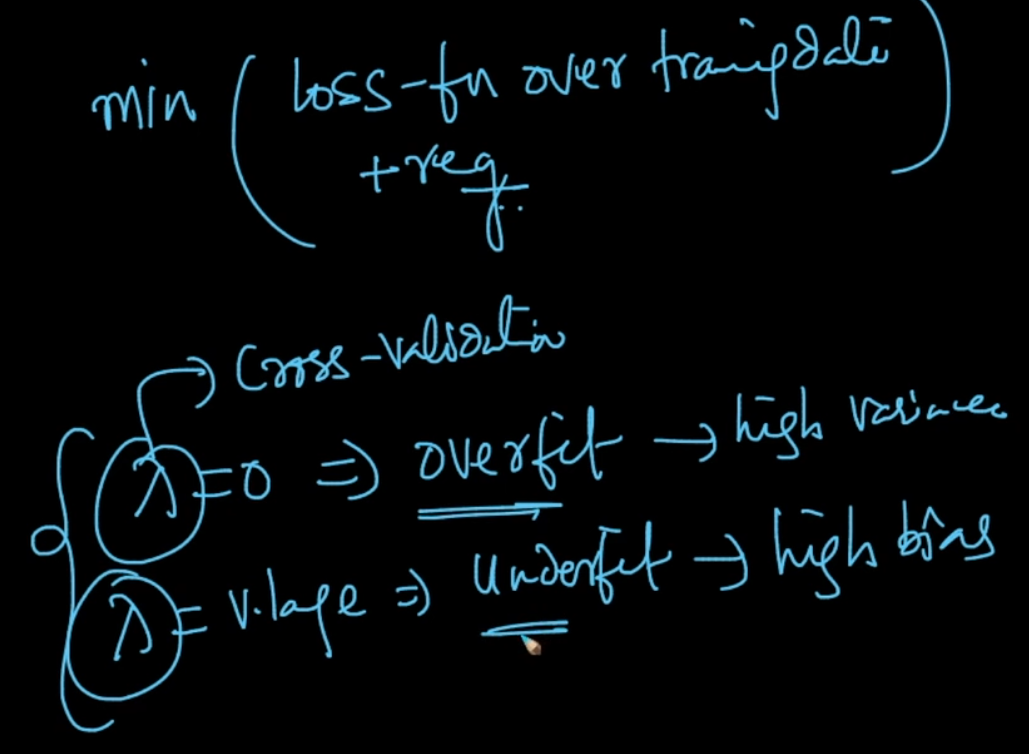 min ( loss-fn over traingdata
+ reg. )
Cross-validation
λ = 0 ⇒ overfit → high variance
λ = v.large ⇒ Underfit → high bias